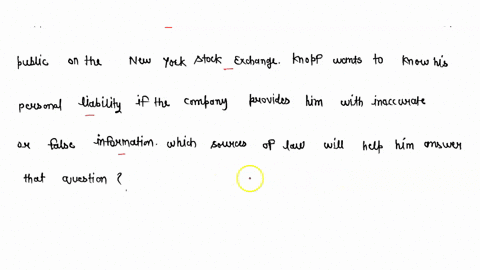 public on the New York Stock Exchange. Knopf wants to know his
personal liability if the company provides him with inaccurate
or false information. which sources of law will help him answer
that question?